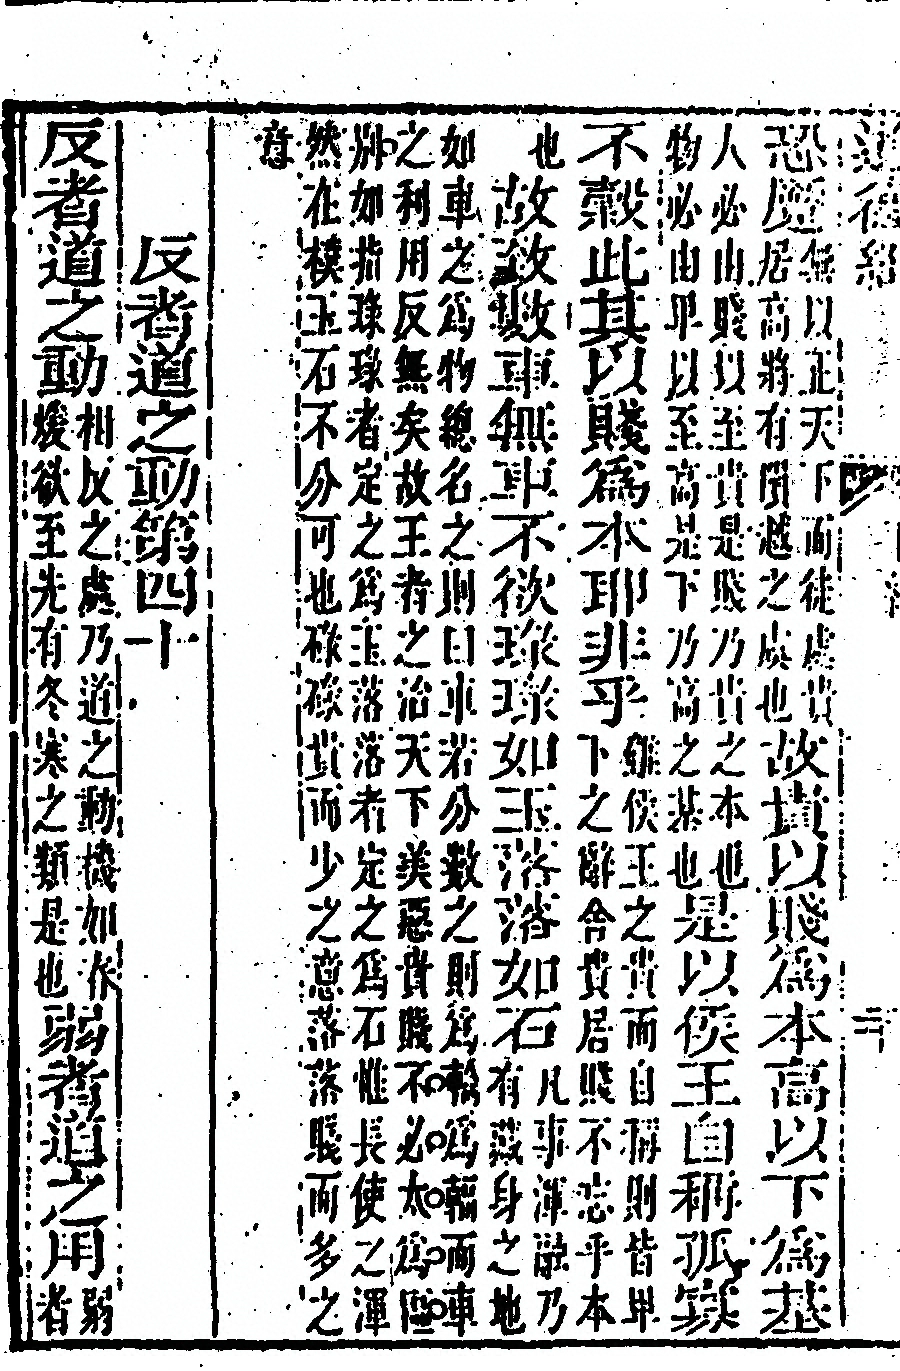 恐蹷無以正天下而徒處貴居高將有隕越之虞也故貴以賤爲本高以下爲基
人必由賤以至貴是賤乃貴之本也物必由卑以至高是下乃高之基也是以侯王自稱孤寡
不穀此其以賤爲本耶非乎雖侯王之貴而自稱則皆卑下之辭舍貴居賤不忘乎本
也故致數車無車不欲琭琭如玉落落如石凡事渾融乃有藏身之地
如車之爲物總名之則曰車若分數之則爲輪爲輻而車
之利用反無矣故王者之治天下美惡貴賤不必太爲區
別如指琭琭者定之爲玉落落者定之爲石惟長使之渾
然在樸玉石不分可也碌碌貴而少之意落落賤而多之
意
反者道之動第四十
反者道之動相反之處乃道之動機如春煖欲至先有冬寒之類是也弱者道之用弱者